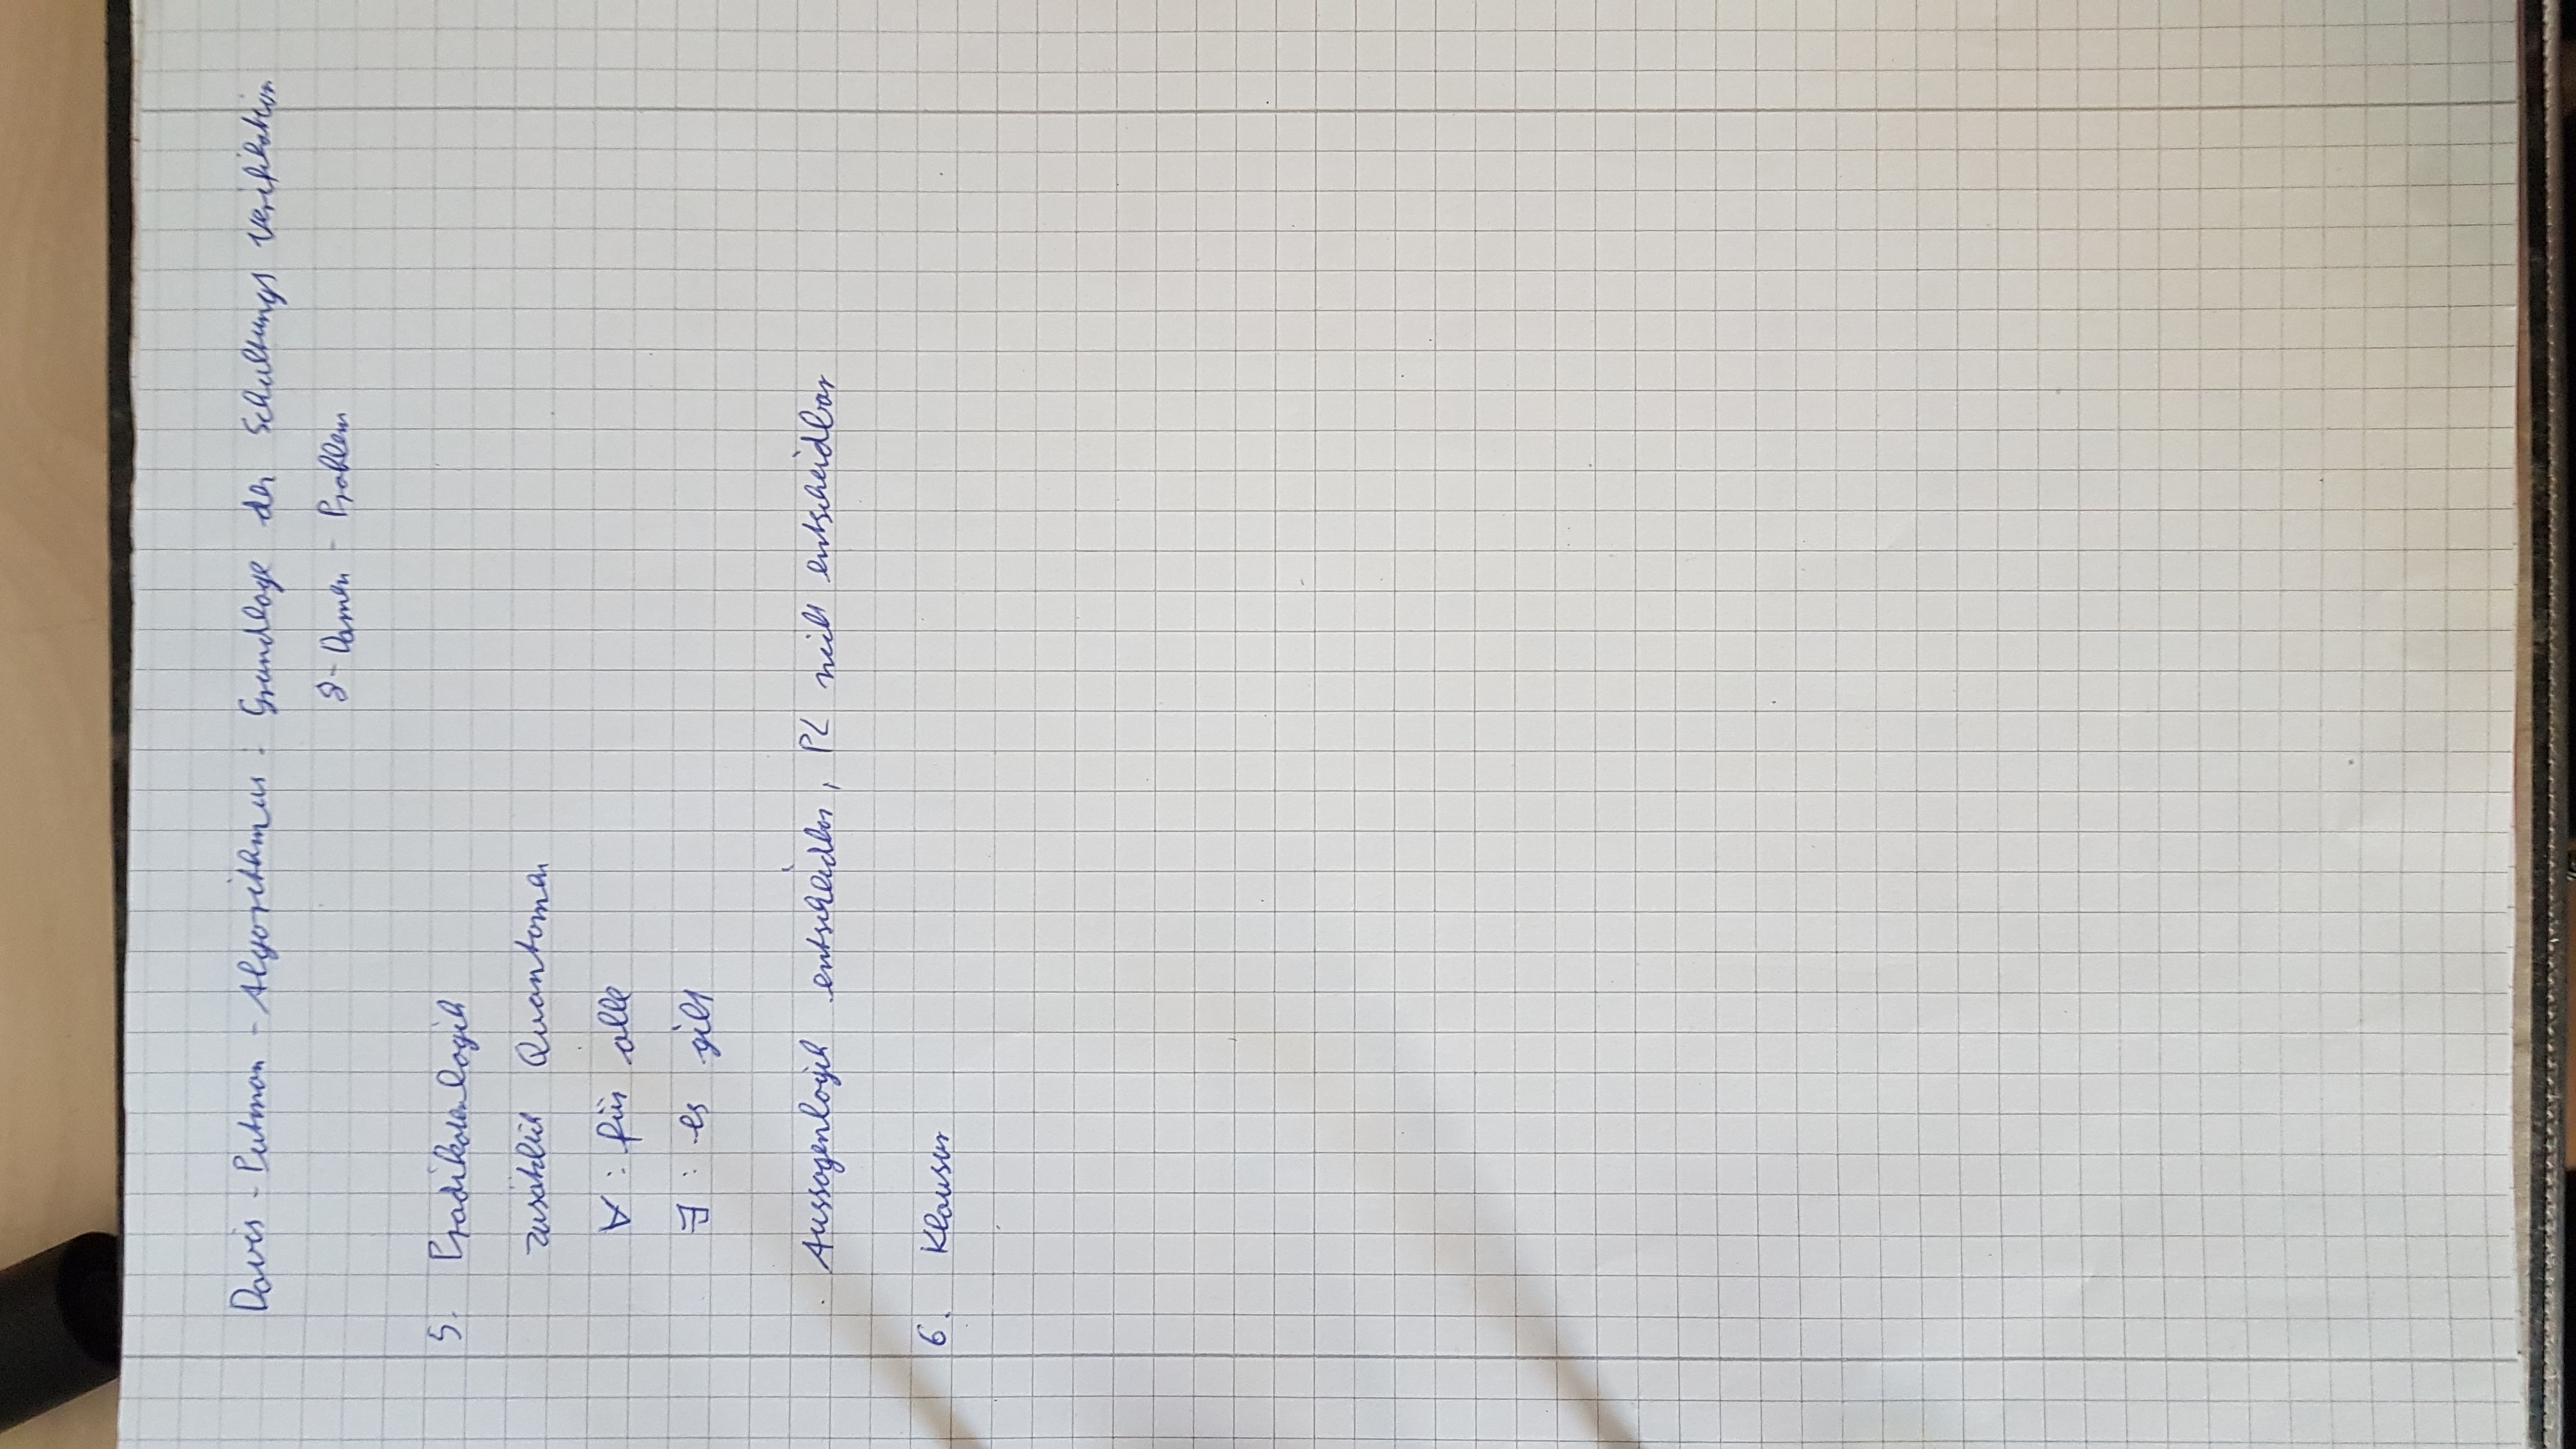 Davis - Putman - Algorithmus : Grundlage der Schaltungs Verifikation
8 - Damen - Problem
5. Prädikatenlogik
zusätzlich Quantoren
∀ : für alle
∃ : es gibt
Aussagenlogik entscheidbar, PL nicht entscheidbar
6. Klausur